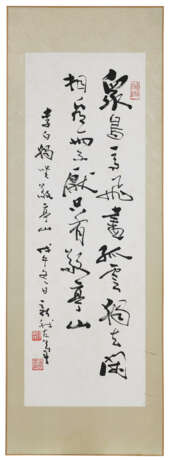 衆鳥高飛盡孤雲獨去閑
相看兩不厭只有敬亭山
李白獨坐敬亭山 戊午 日 新我左筆